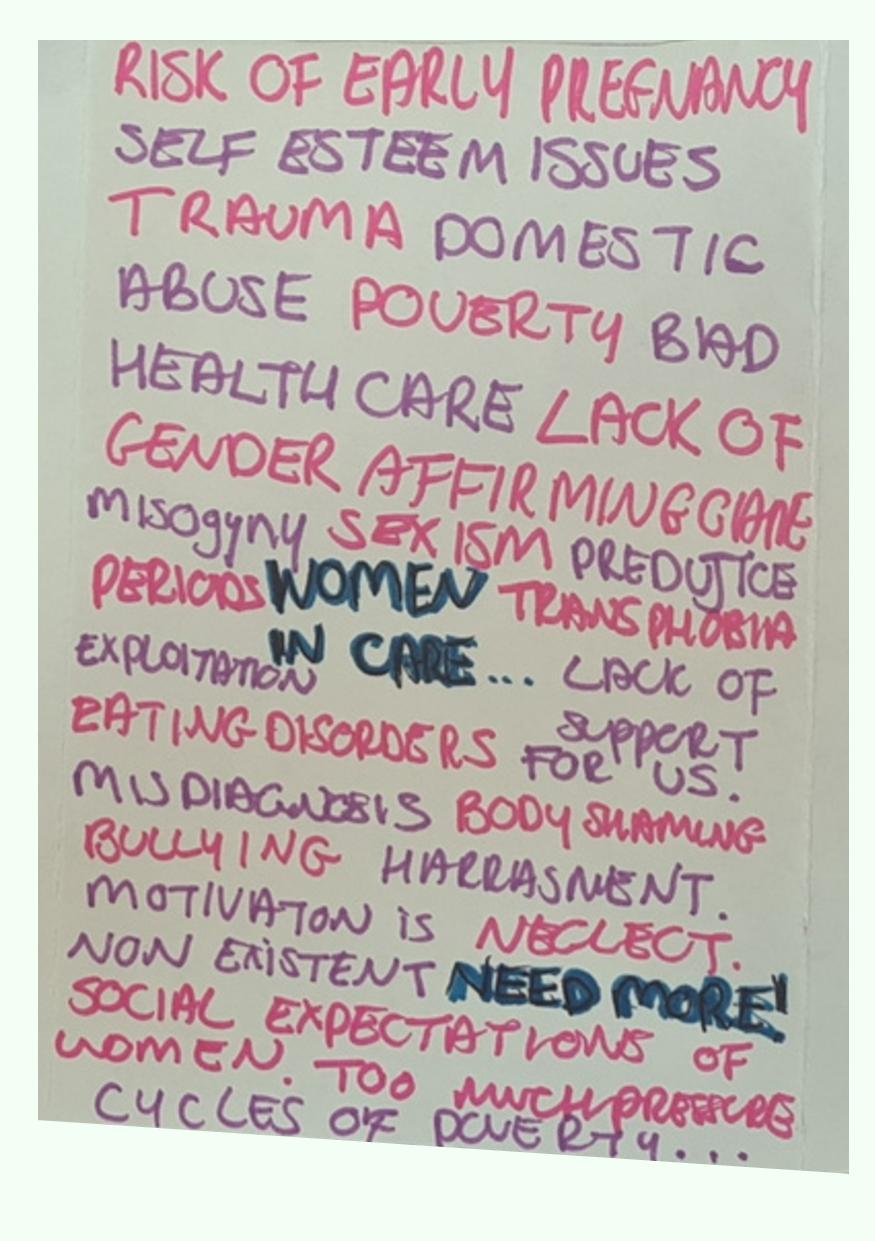 RISK OF EARLY PREGNANCY
SELF ESTEEM ISSUES
TRAUMA DOMESTIC
ABUSE POVERTY BAD
HEALTH CARE LACK OF
GENDER AFFIRMING CARE
MISOGYNY SEXISM PREDUJICE
PERIODS WOMEN TRANSPHOBIA
EXPLOITATION IN CARE... LACK OF
EATING DISORDERS SUPPORT
FOR US.
MISDIAGNOSIS BODY SHAMING
BULLYING HARRASMENT.
MOTIVATON is NEGLECT.
NON EXISTENT NEED MORE!
SOCIAL EXPECTATIONS OF
WOMEN. TOO MUCH PRESSURE
CYCLES OF POVERTY...